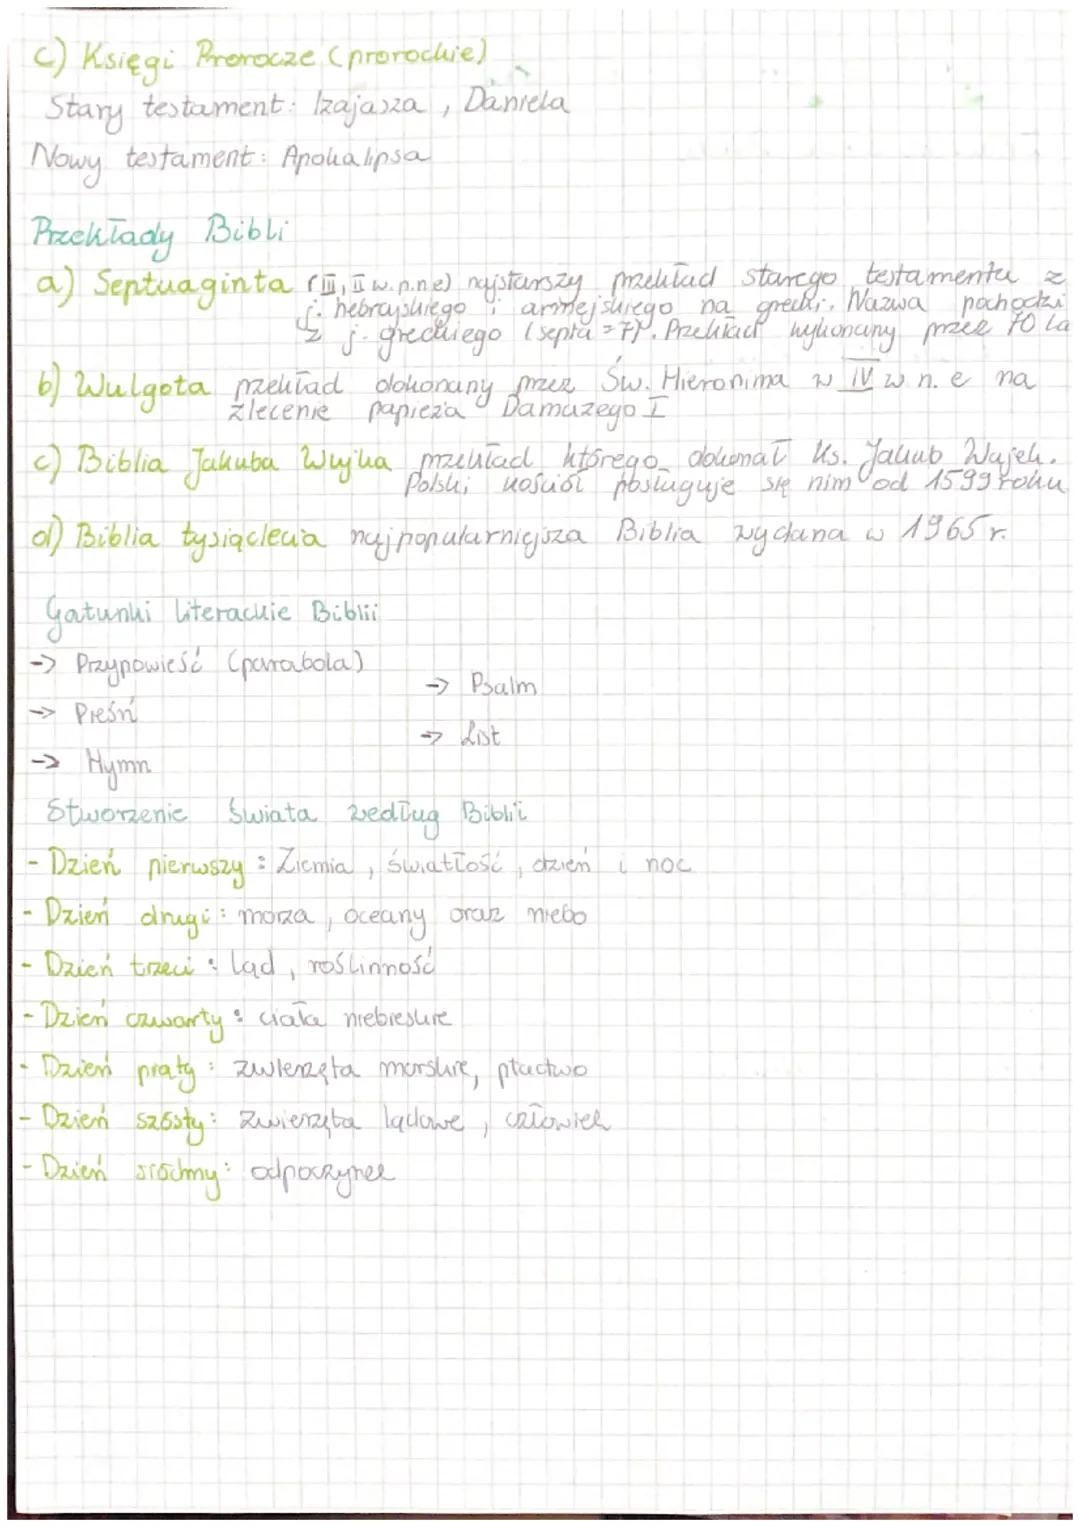 c) Księgi Prorocze (prorockie)
Stary testament: Izajasza, Daniela
Nowy testament: Apokalipsa
Przekłady Bibli
a) Septuaginta (III, II w.p.n.e) najstarszy przekład starego testamentu z
j. hebrajskiego i armejskiego na grecki. Nazwa pochodzi
z j. greckiego (septa = 7). Przekład wykonany przez 70 la
b) Wulgota przekład dokonany przez Św. Hieronima w IV w n.e na
zlecenie papieża Damazego I
c) Biblia Jakuba Wujka przekład którego dokonał ks. Jakub Wujek.
Polski kościół posługuje się nim od 1599 roku
d) Biblia tysiąclecia najpopularniejsza Biblia wydana w 1965 r.
Gatunki literackie Biblii
-> Przypowieść (parabola)
-> Psalm
-> Pieśń
-> List
-> Hymn
Stworzenie świata według Biblii
- Dzień pierwszy: Ziemia, światłość, dzień i noc
- Dzień drugi: morza, oceany oraz niebo
- Dzień trzeci: ląd, roślinność
- Dzień czwarty: ciała niebieskie
- Dzień piąty: zwierzęta morskie, ptactwo
- Dzień szósty: zwierzęta lądowe, człowiek
- Dzień siódmy: odpoczynek